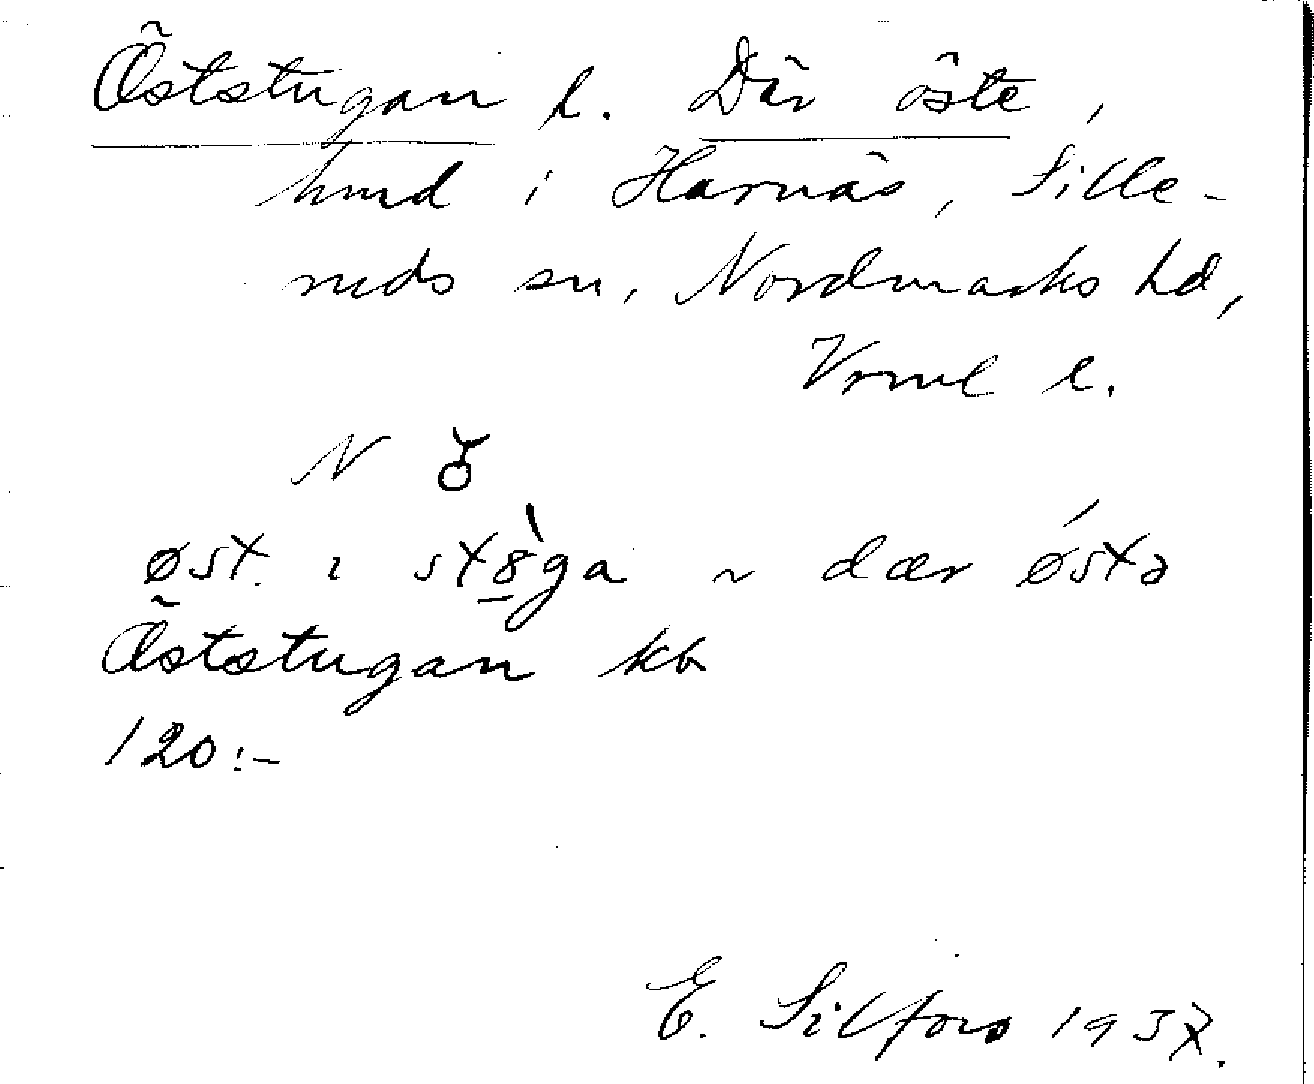 Öststugan l. Där öste,
hmd i Harnäs, Sille-
ruds sn, Nordmarks hd,
Vrml l.
N ♉
øst. ı st8̠̀ga ~ dær ǿstə
Öststugan kb
120:-
E. Silfors 1937.